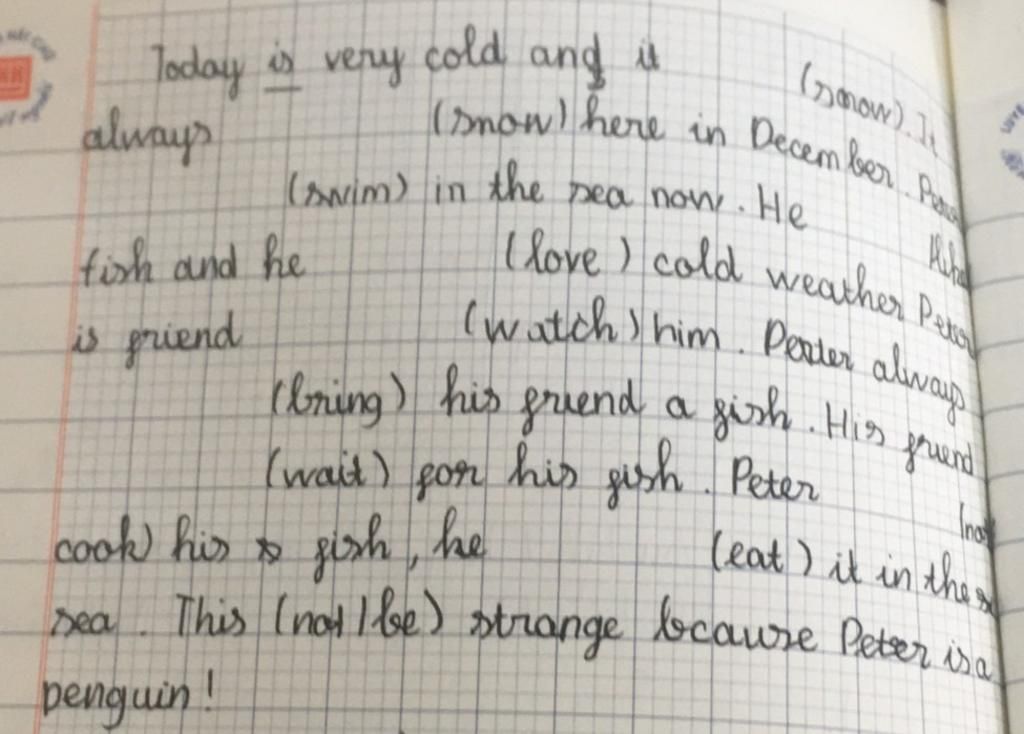 Today is very cold and it (snow). It
always (snow) here in December. Peter
(swim) in the sea now. He
fish and he (love) cold weather Peter
is friend (watch) him. Peater always
(bring) his friend a fish. His friend
(wait) for his fish. Peter (not
cook) his fish, he (eat) it in the
sea. This (not/be) strange because Peter is a
penguin!